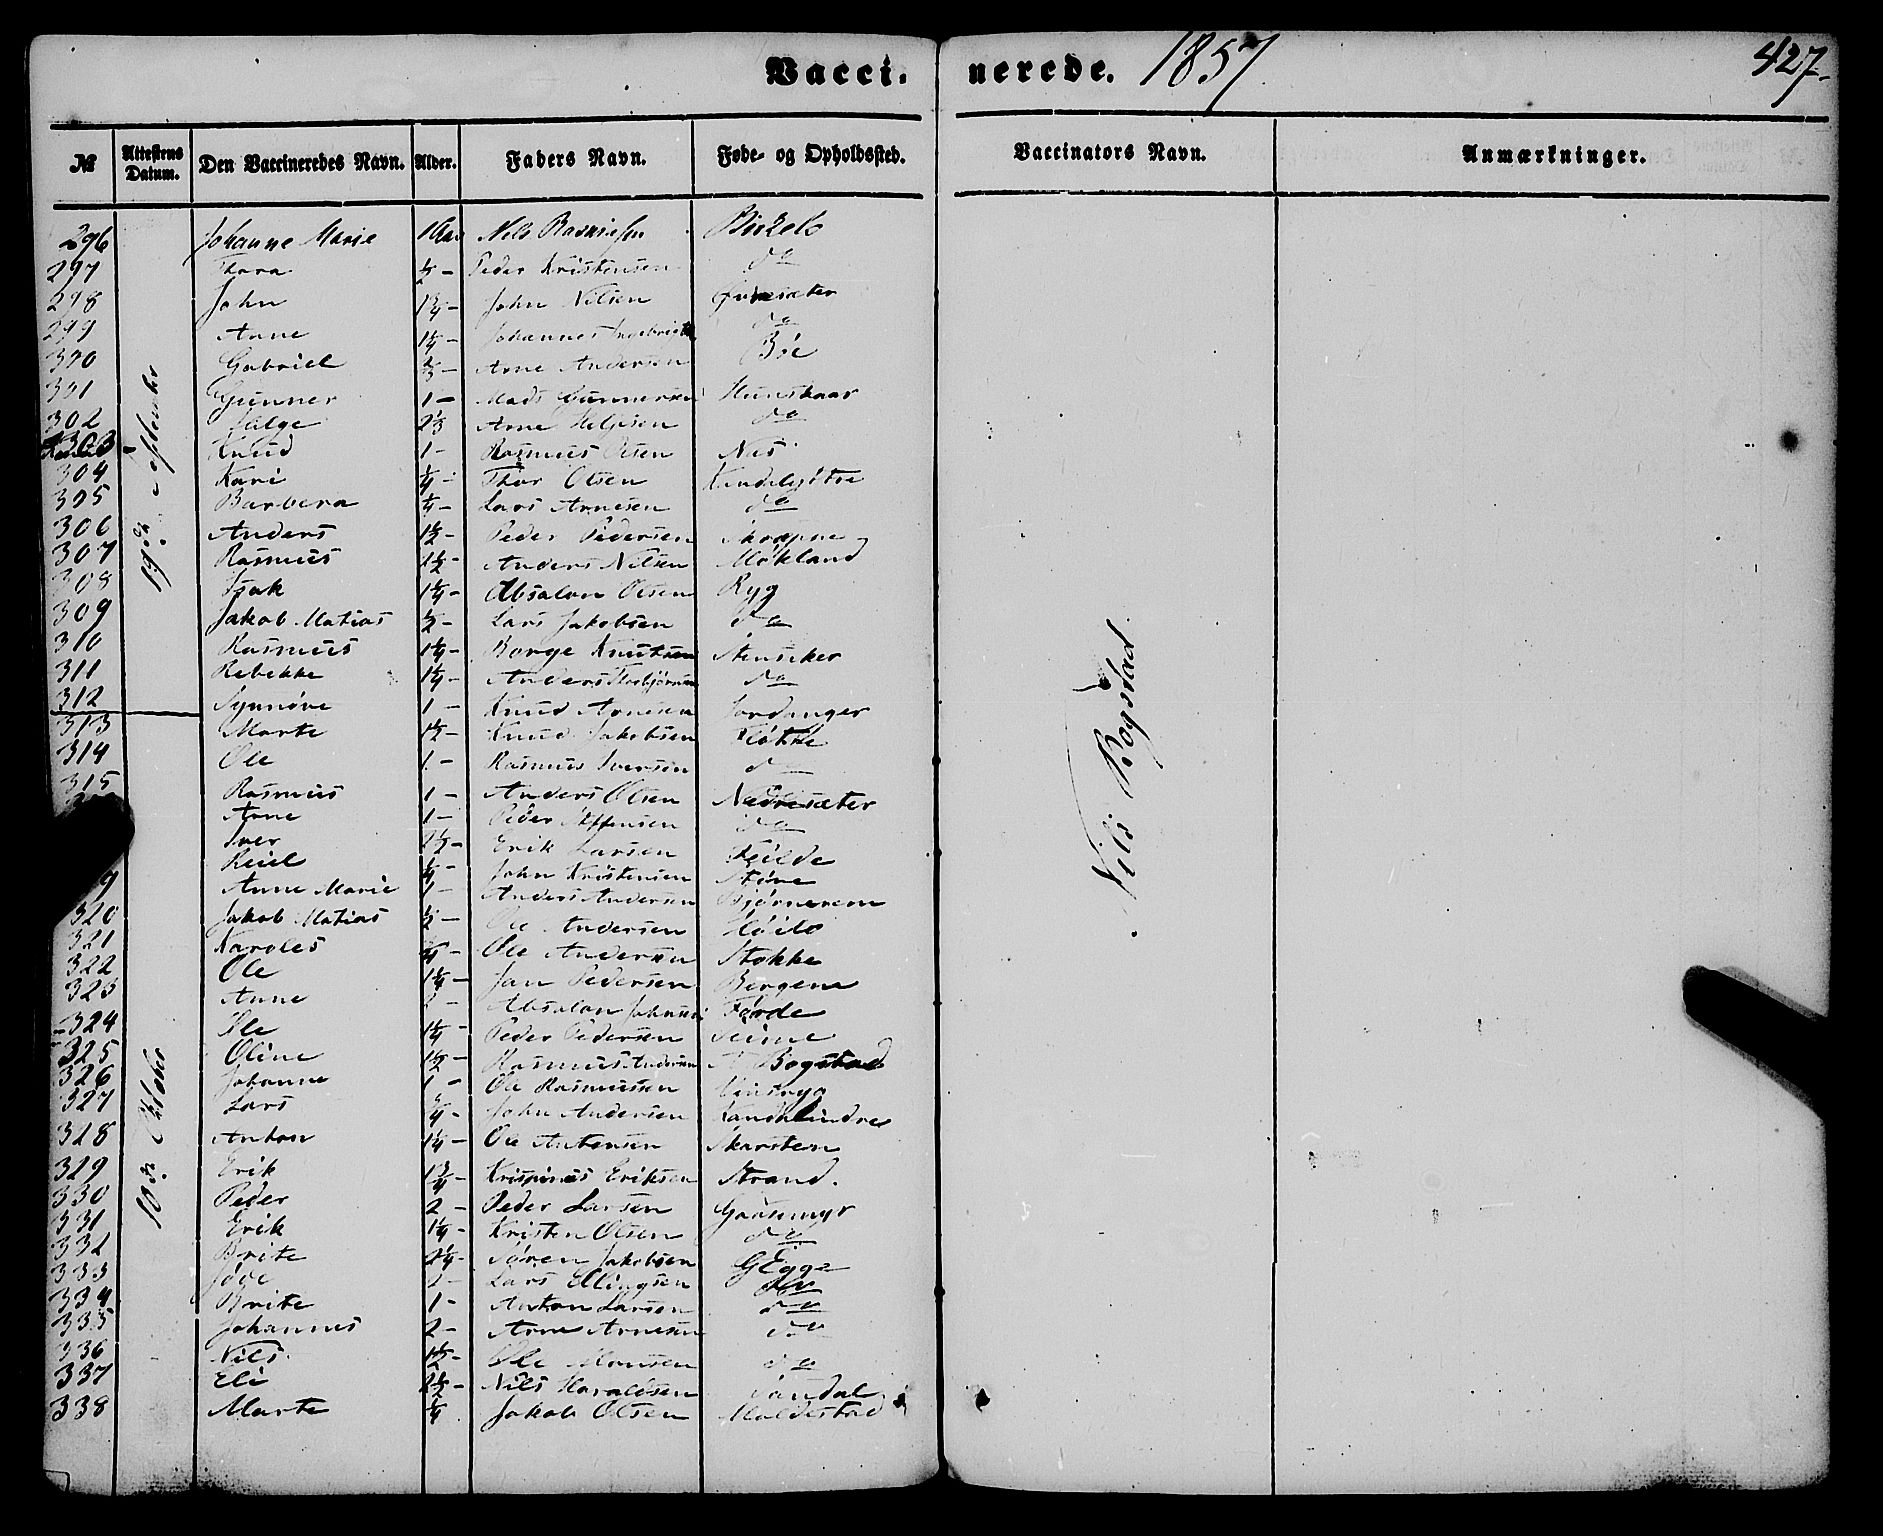 Vaccinerede. 1857. 427.
№ Attestens Datum. Den Vaccineredes Navn. Alder. Faders Navn. Føde- og Opholdssted. Vaccinators Navn. Anmærkninger.
19de
10de
Nils Bogstad
296 Johanne Marie 1 Aar Nils Rasmussen
297 Thora ½ - Peder Kristensen do
298 John John Nilsen Øvresæter
299 Anne 1¼ - Johannes do
300 Gabriel Arne Andersen Böe
301 Gunner 1 - Mads Gunnersen Hunskaar
302 Helge 2⅓ Arne Helgesen do
303 Knud 1 - Rasmus Olsen Nes
304 Kari ¼ - Thor Olsen
305 Barbera ¼ - Lars Arnesen do
306 Anders 1½ - Peder Pedersen
307 Rasmus 1½ - Anders Nilsen Møkland
308 Isak 1¼ - Absalon Olsen Ryg
309 Jakob Matias ½ - Lars Jakobsen do
310 Rasmus 1¼ - Borge Knutsen
311 Rebekke 1¼ - Anders Thorbjørnsen do
312 Synnöve 1 - Knud Arnesen Jordanger
313 Marte 1½ - Knud Jakobsen Fløtte
314 Ole 1 - Rasmus Iversen do
315 Rasmus 1 - Anders Olsen Nedresæter
Arne 1 - Peder Steffensen do
Iver 2½ - Erik Larsen
¼ - John Kristensen Støve
9 Anne Marie 1 - Anders Andersen Bjørnerem
320 Jakob Matias ½ - Ole Andersen
321 Karoles Ole Andersen Stokke
322 Ole 1¼ - Jan Pedersen Bergene
323 Anne Absalon Førde
324 Ole 1¼ - Peder Pedersen Seime
325 Oline 1½ - Rasmus Andersen Bogstad
326 Johanne 1 - Ole Rasmussen
327 Lars John Andersen
328 Anton 1¼ - Ole Antonsen Skarstein
329 Erik 1¾ - Krispinus Eriksen Strand.
330 Peder 2 - Peder Larsen Gaasemyr
331 Erik 1¼ - Kristen Olsen do
332 Brite 2¼ - Sören Jakobsen Egge
333 2 - Lars Ellingsen do
334 Brite 1 - Anton Larsen do
335 Johannes 2 - Arne Arnesen do
336 Nils 1½ - Ole Monsen do
337 Eli 2½ - Nils Haraldsen Sandal
338 Marte ¼ Jakob Olsen Moldestad